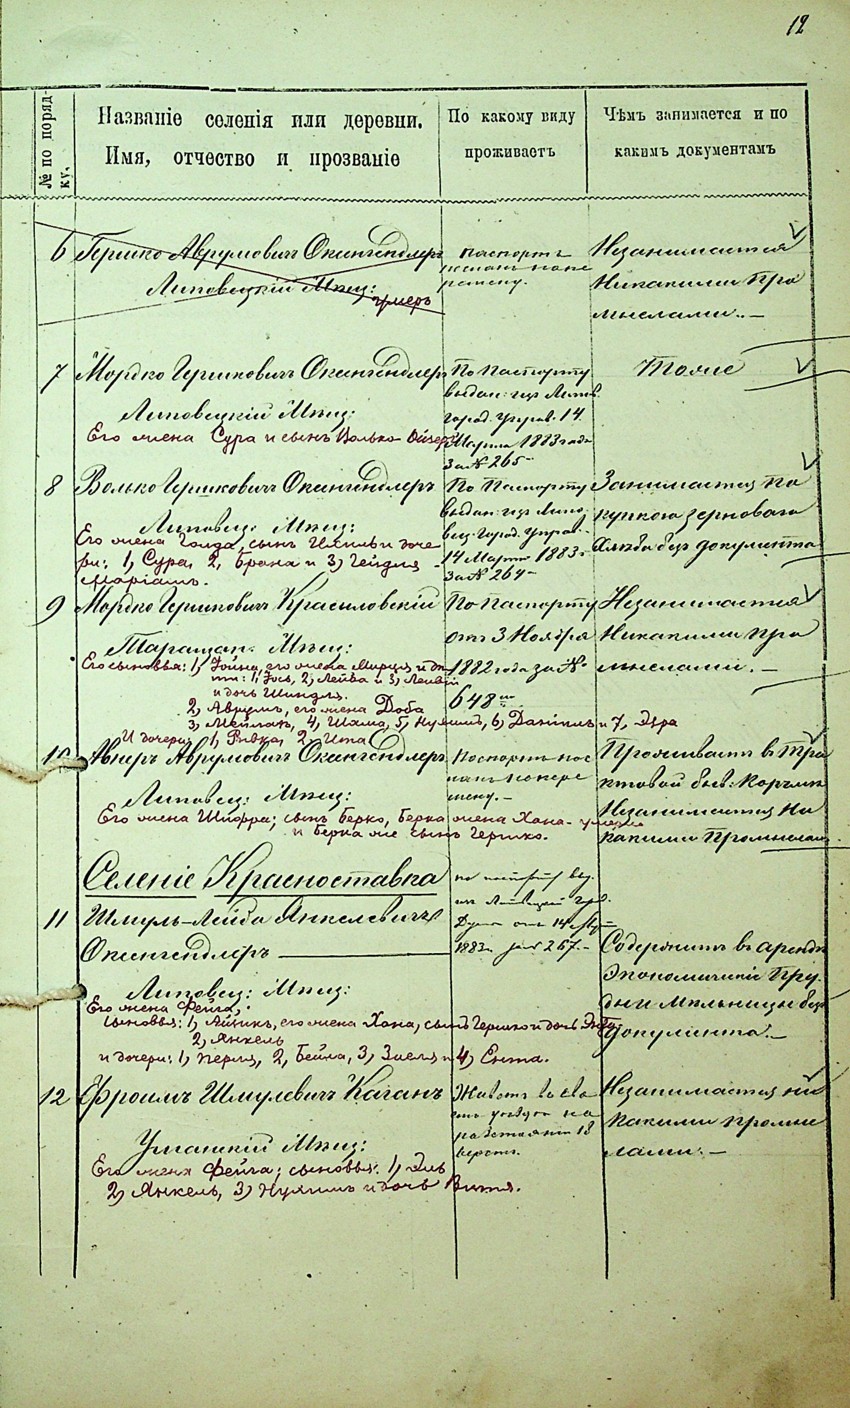 12
№ по поряд-
ку.
Названіе селенія или деревни.
Имя, отчество и прозваніе
По какому виду
проживаетъ
Чѣмъ занимается и по
какимъ документамъ
6 Гершко Аврумович Оксенгендлеръ
Липовецкій Мѣщ:
умеръ
паспортъ
Незанимается
Никакими Про
мыслами. –
7 Мордко Гершковичъ Оксенгендлеръ
Липовецкій Мѣщ:
Его жена Сура и сынъ Волько
По Паспорту
выдан: изъ Липов.
город. Управ. 14
Марта 1883 года
За № 265 –
Тоже
8 Волько Гершкович Оксенгендлеръ
Липовец: Мѣщ:
Его жена Голда, сынъ и доче
ри: 1, Сура, 2, Брана и 3,
Маріамъ.
По Паспорту
выдан: изъ Липо
вец: Город. Управ.
14 Марта 1883 г
За № 264 –
Занимается По
купкою зерноваго
хлѣба безъ документа
9 Мордко Гершковичъ Красиловскій
Таращан: Мѣщ:
Его сыновья: 1, его жена и дѣ
ти: 1, Іось, 2, Лейба и 3,
и дочь Шиндля.
2, Аврумъ, его жена Доба
3, 4, Шама, 5, 6, Даніилъ и 7,
И дочери: 1, Ривка, 2, Ита
По Паспорту
отъ 3 Ноября
1882 года за №
648
Незанимается
Никакими про
мыслами. –
10 Аврумовичъ Оксенгендлеръ
Липовец: Мѣщ:
Его жена Шифра; сынъ Берко, Берка жена Хана - умерла
и Берка же сынъ Гершко.
Паспортъ пос
ланъ на пере
мену. –
Проживаетъ в Тра
ктовой быв: Корчмѣ
Незанимается Ни
какими Промыслами
Селеніе Красноставка
11 Шмуль-Лейба Янкелевичъ
Оксенгендлеръ
Липовец: Мѣщ:
Его жена Фейга,
сыновья: 1, Айзикъ, его жена Хана, сынъ Гершко и дочь
2, Янкель
и дочери: 1, Перля, 2, Бейла, 3, и 4, Ента.
1883 за № 267 –
Содержитъ в арендѣ
Экономическіе Пру
ды и Мельницы безъ
документа. –
12 Фроимъ Шмулевичъ Каганъ
Уманскій Мѣщ:
Его жена Фейга; сыновья: 1, Эль
2, Янкель, 3, Нухимъ и дочь Витя.
Живетъ
на
разстояніи 18
верстъ.
Незанимается ни
какими промыс
лами. –